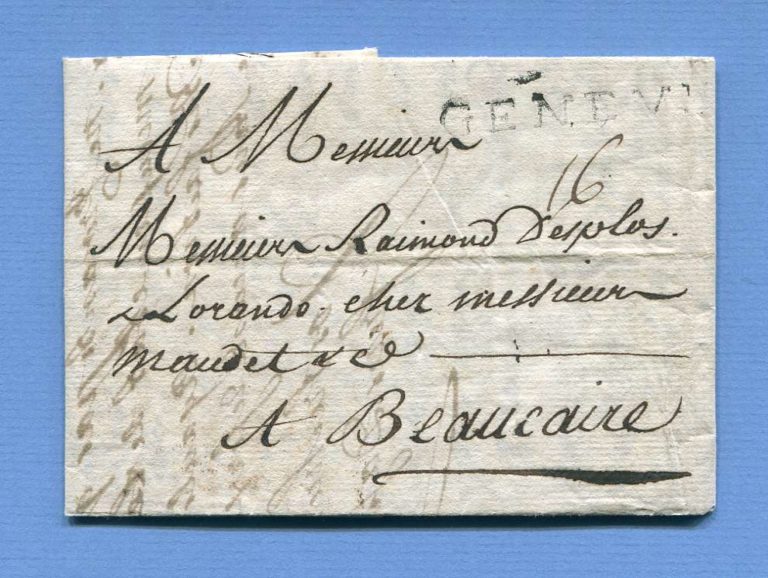 GENEV
A Messieurs
16
Messieurs Raimond Desplos.
& Lorando chez messieurs
maudet & Ce
A Beaucaire